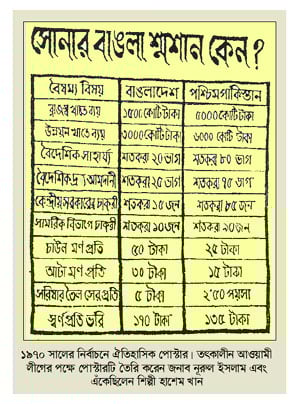 সোনার বাঙলা শ্মশান কেন?
বৈষম্য বিষয় বাঙলাদেশ পশ্চিম পাকিস্তান
রাজস্ব খাতে ব্যয় ১৫০০ কোটি টাকা ৫০০০ কোটি টাকা
উন্নয়ন খাতে ব্যয় ৩০০০ কোটি টাকা ৬০০০ কোটি টাকা
বৈদেশিক সাহায্য শতকরা ২০ ভাগ শতকরা ৮০ ভাগ
বৈদেশিক দ্রব্য আমদানী শতকরা ২৫ ভাগ শতকরা ৭৫ ভাগ
কেন্দ্রীয় সরকারের চাকুরী শতকরা ১৫ জন শতকরা ৮৫ জন
সামরিক বিভাগে চাকুরী শতকরা ১০ জন শতকরা ৯০ জন
চাউল মণ প্রতি ৫০ টাকা ২৫ টাকা
আটা মণ প্রতি ৩০ টাকা ১৫ টাকা
সরিষার তৈল সের প্রতি ৫ টাকা ২'৫০ পয়সা
স্বর্ণ প্রতি ভরি ১৭০ টাকা ১৩৫ টাকা
১৯৭০ সালের নির্বাচনে ঐতিহাসিক পোস্টার। তৎকালীন আওয়ামী
লীগের পক্ষে পোস্টারটি তৈরি করেন জনাব নূরুল ইসলাম এবং
এঁকেছিলেন শিল্পী হাশেম খান